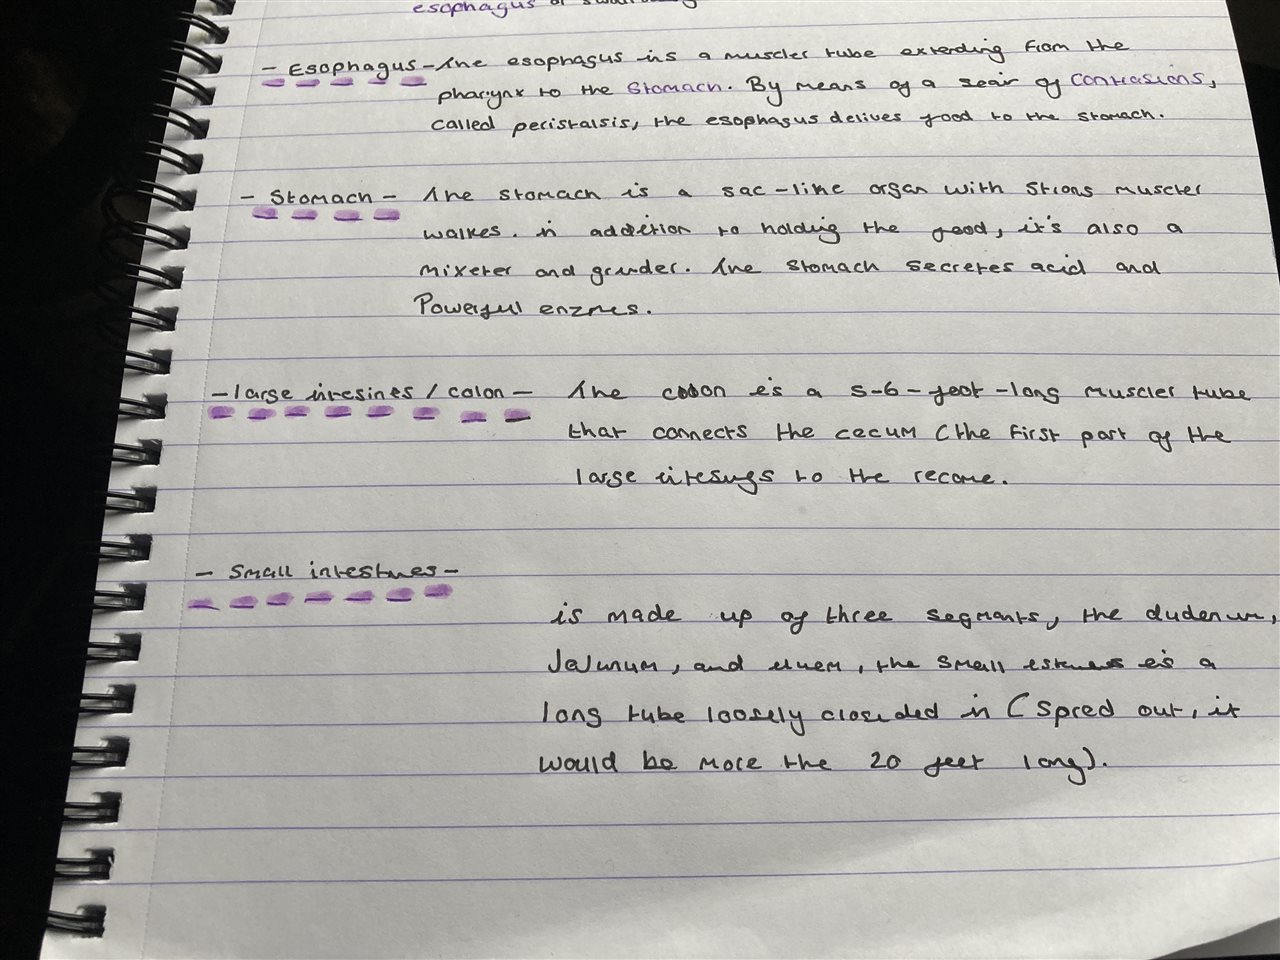 esophagus or
- Esophagus - The esophagus is a muscler tube extending from the
pharynx to the Stomach. By means of a seair of Contrasions,
called peristalsis, the esophagus delives food to the stomach.
- Stomach - The stomach is a sac-like organ with Strong muscler
walkes. in addition to holding the food, it's also a
mixerer and grinder. The stomach secretes acid and
Powerful enzmes.
- large intesines / colon - The colon is a 5-6-foot-long muscler tube
that connects the cecum (the first part of the
large to the recome.
- Small intestines -
is made up of three segments, the dudenum,
Jejunum, and the small is a
long tube loosely in (spred out, it
would be more the 20 feet long).